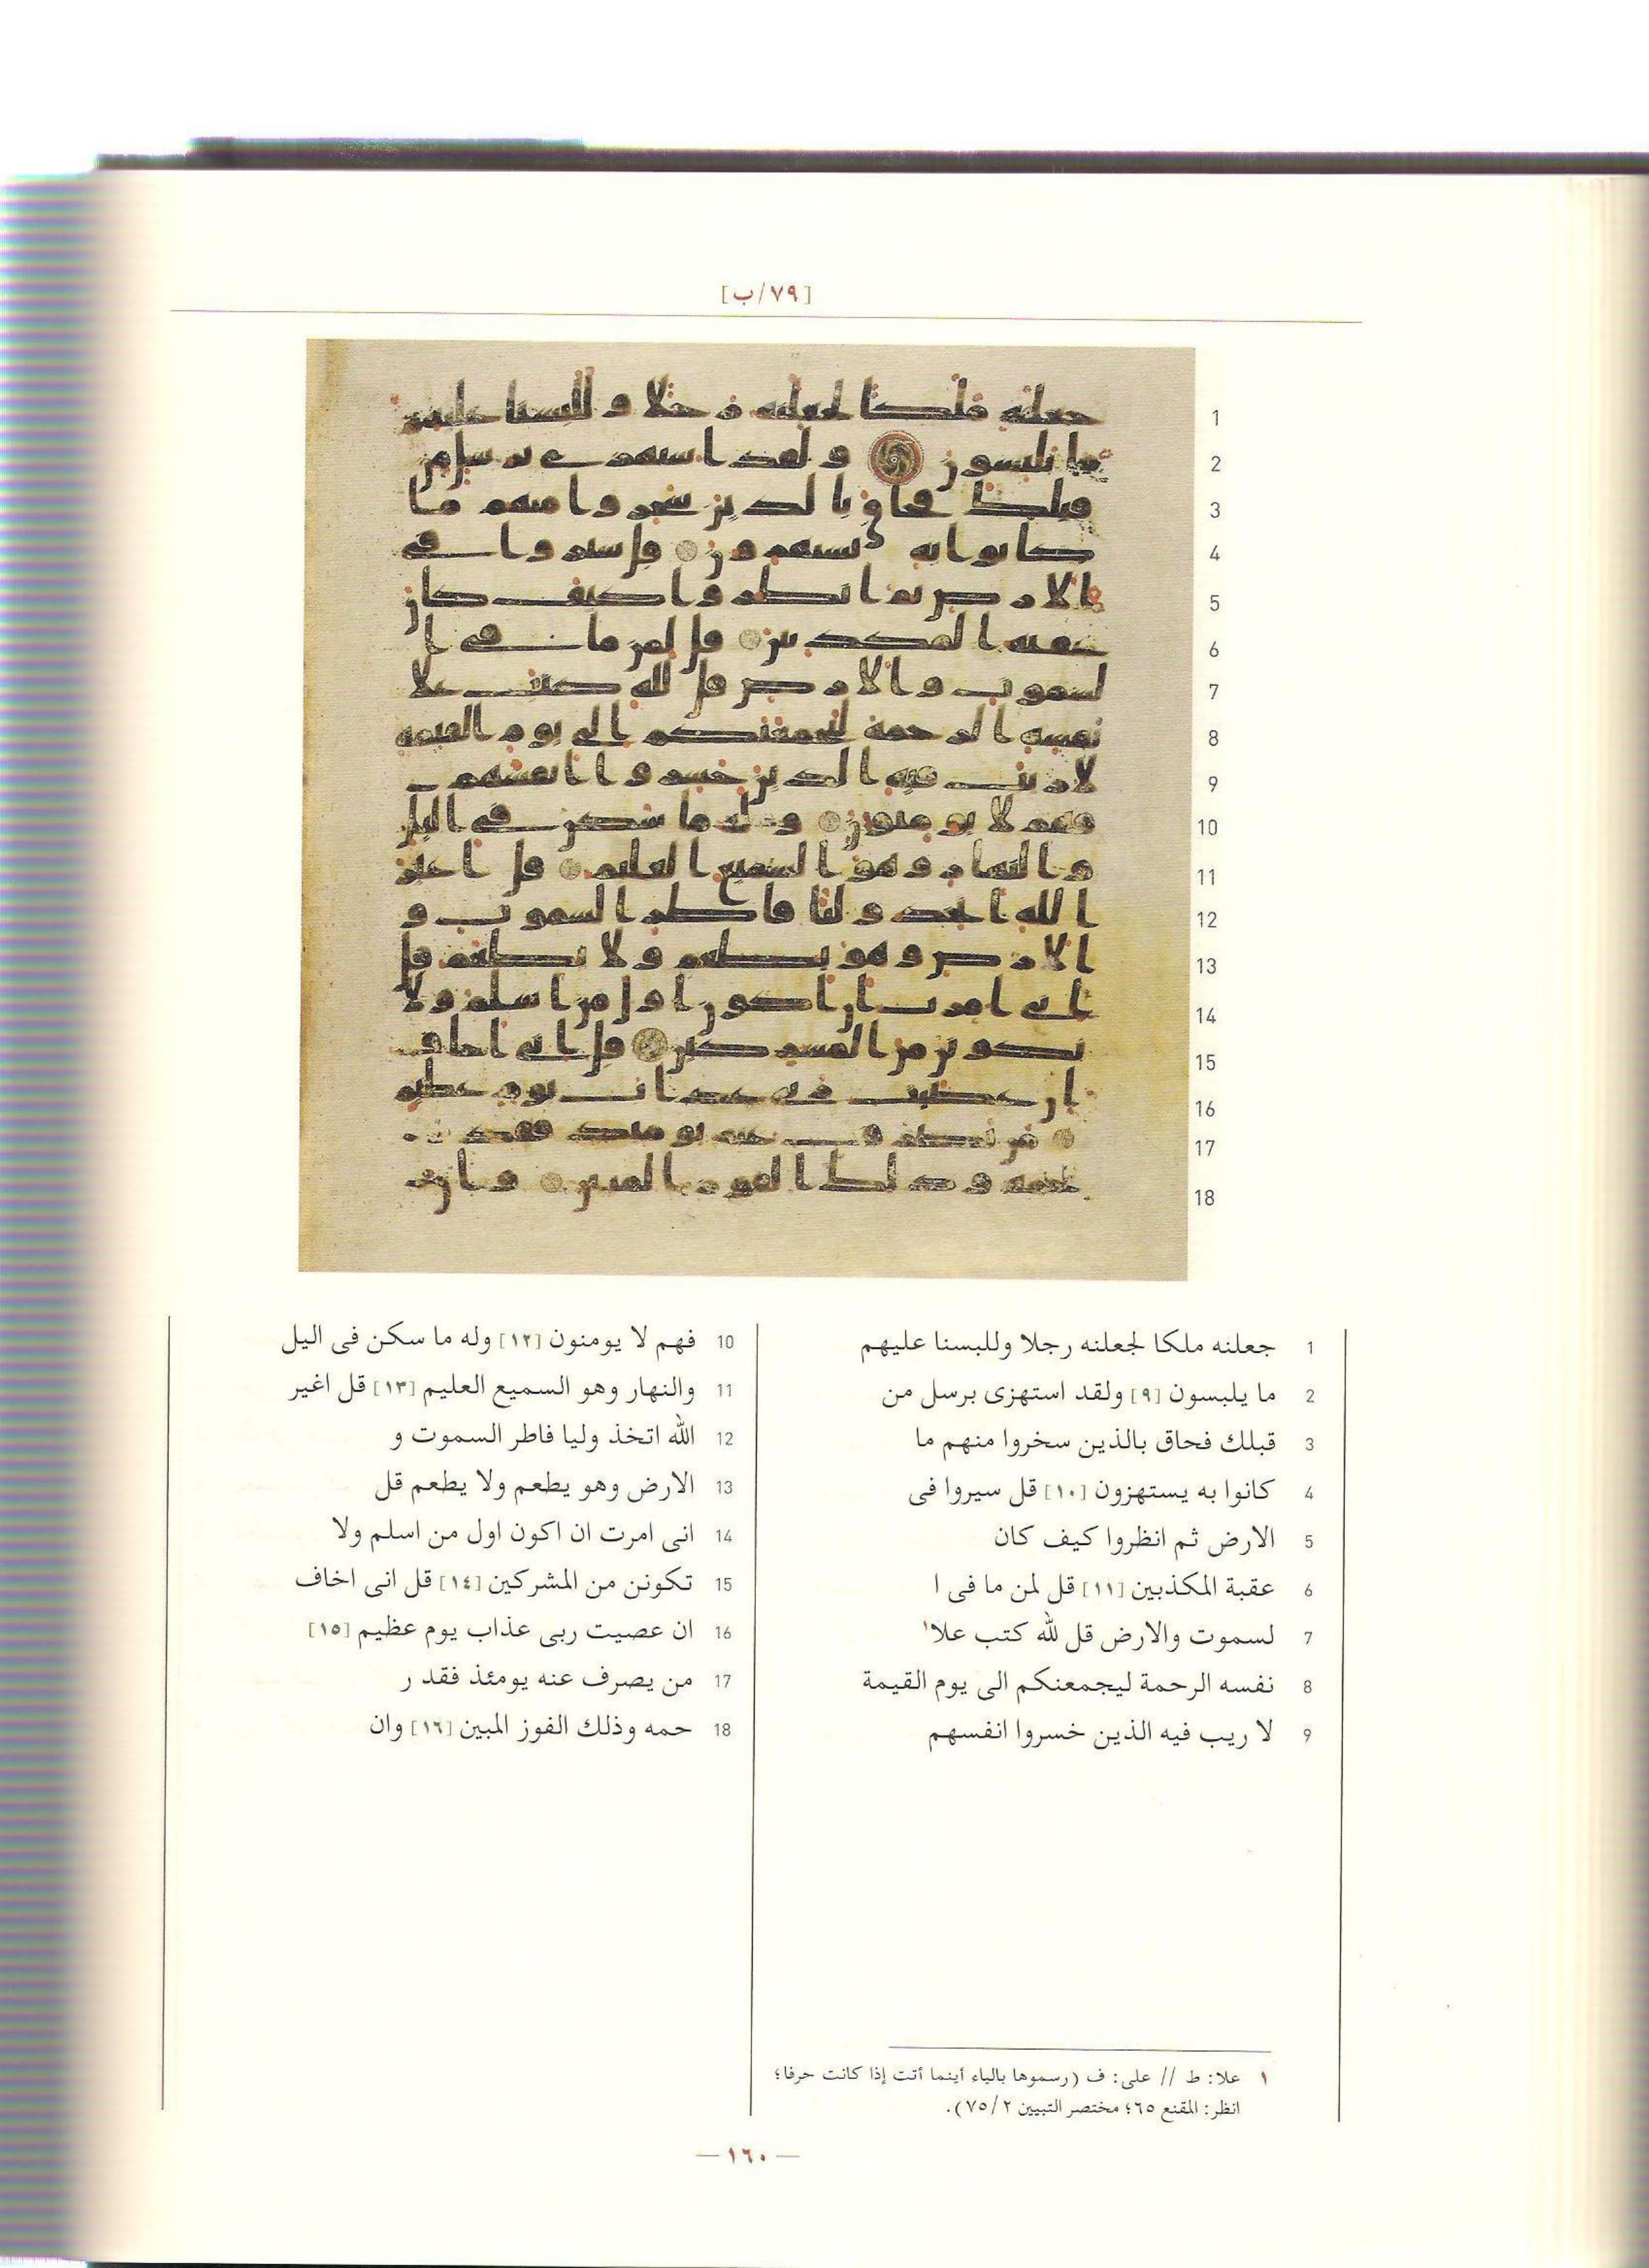 [٧٩/ب]
1
2
3
4
5
6
7
8
9
10
11
12
13
14
15
16
17
18
1 جعلنه ملكا لجعلنه رجلا وللبسنا عليهم
2 ما يلبسون [٩] ولقد استهزى برسل من
3 قبلك فحاق بالذين سخروا منهم ما
4 كانوا به يستهزون [١٠] قل سيروا فى
5 الارض ثم انظروا كيف كان
6 عقبة المكذبين [١١] قل لمن ما فى ا
7 لسموت والارض قل لله كتب علا١
8 نفسه الرحمة ليجمعنكم الى يوم القيمة
9 لا ريب فيه الذين خسروا انفسهم
10 فهم لا يومنون [١٢] وله ما سكن فى اليل
11 والنهار وهو السميع العليم [١٣] قل اغير
12 الله اتخذ وليا فاطر السموت و
13 الارض وهو يطعم ولا يطعم قل
14 انى امرت ان اكون اول من اسلم ولا
15 تكونن من المشركين [١٤] قل انى اخاف
16 ان عصيت ربى عذاب يوم عظيم [١٥]
17 من يصرف عنه يومئذ فقد ر
18 حمه وذلك الفوز المبين [١٦] وان
١ علا: ط // على: ف (رسموها بالياء أينما أتت إذا كانت حرفا؛
انظر: المقنع ٦٥؛ مختصر التبيين ٧٥/٢).
— ١٦٠ —